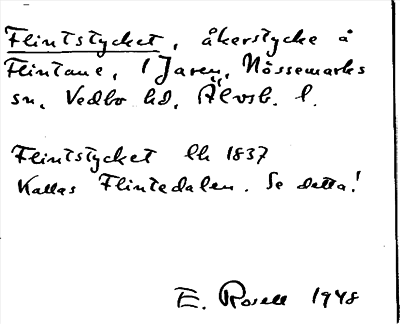 Flintstycket, åkerstycke å
Flintane, 1 Jaren, Nössemarks
sn, Vedbo hd, Älvsb. l.
Flintstycket lh 1837
Kallas Flintedalen. Se detta!
E. Rosell 1948